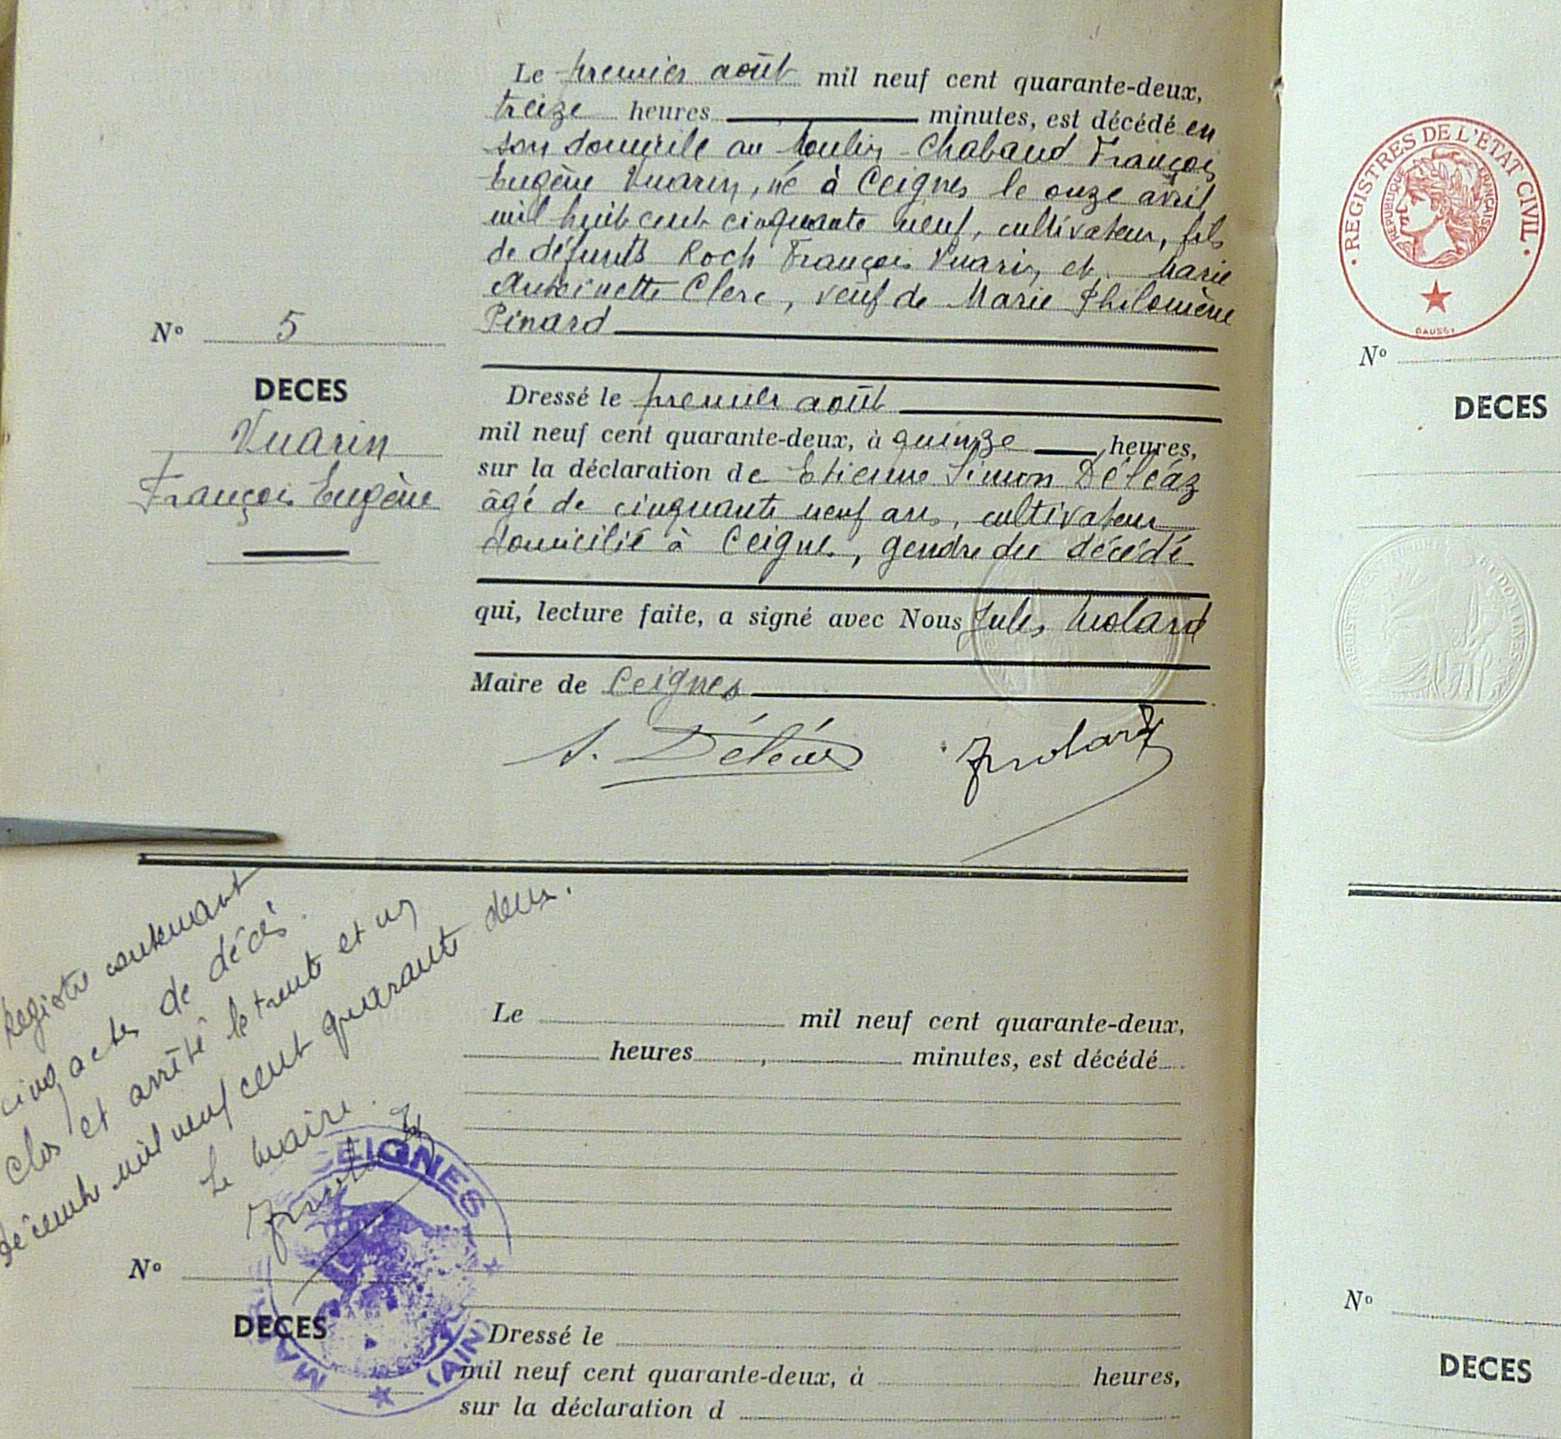 Le premier août mil neuf cent quarante-deux,
treize heures minutes, est décédé en
son domicile au Moulin-Chabaud François
Eugène Vuarin, né à Ceignes le onze avril
mil huit cent cinquante neuf, cultivateur, fils
de défunts Roch François Vuarin et Marie
Antoinette Clerc, veuf de Marie Philomène
Pinard
N° 5
DECES
Vuarin
François Eugène
Dressé le premier août
mil neuf cent quarante-deux, à quinze heures,
sur la déclaration de Etienne Simon Déléaz
âgé de cinquante neuf ans, cultivateur
domicilié à Ceignes, gendre du décédé
qui, lecture faite, a signé avec Nous Jules Molard
Maire de Ceignes
S. Déléaz
JMolard
Registre contenant
cinq actes de décès.
Clos et arrêté le trente et un
décembre mil neuf cent quarante deux.
Le Maire.
JMolard
CEIGNES
(AIN)
Le mil neuf cent quarante-deux,
heures, minutes, est décédé
N°
DECES
Dressé le
mil neuf cent quarante-deux, à heures,
sur la déclaration d
REGISTRES DE L'ÉTAT CIVIL
RÉPUBLIQUE FRANÇAISE
N°
DECES
N°
DECES